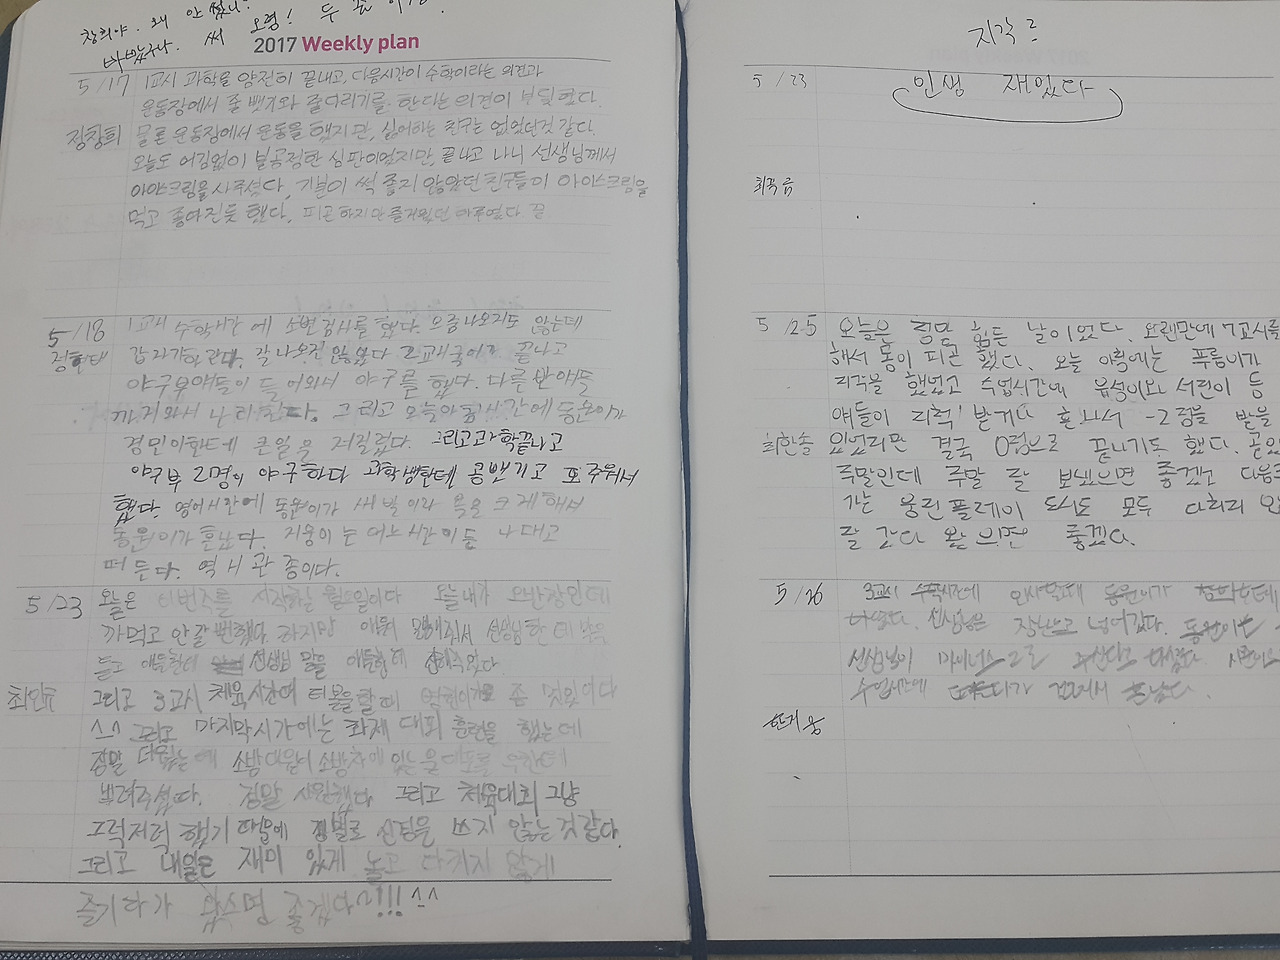 창희야. 왜 안 썼니?
바빴구나. 써 오렴! 두 줄
2017 Weekly plan
5/17 1교시 과학을 얌전히 끝내고, 다음시간이 수학이라는 의견과
운동장에서 줄 뺏기와 줄다리기를 한다는 의견이 부딪혔다.
정창희 물론 운동장에서 운동을 했지만, 싫어하는 친구는 없었던것 같다.
오늘도 어김없이 불공정한 심판이었지만, 끝나고 나니 선생님께서
아이스크림을 사주셨다, 기분이 썩 좋지 않았던 친구들이 아이스크림을
먹고 좋아진듯 했다. 피곤하지만 즐거웠던 하루였다 끝
5/18 1교시 수학시간에 소변검사를 했다. 오줌나오지도 않는데
갑자기하란다. 잘 나오진 않았다 2교시국어가 끝나고
야구부애들이 들어와서 야구를 했다. 다른반애들
까지와서 난리 그리고 오늘아침시간에 동원이가
경민이한테 큰일을 저질렀다. 그리고과학끝나고
야구부 2명이 야구하다 과학쌤한테 공뺏기고
했다. 영어시간에 동원이가 씨발이라 욕을 크게해서
동원이가 혼났다. 지웅이는 어느시간이든 나대고
떠든다. 역시 관종이다.
5/23 오늘은 이번주를 시작하는 월요일이다 오늘 내가 오반장인데
까먹고 안갈뻔했다. 하지만 애들이 말해줘서 선생님한테
듣고 애들한테 선생님 말을 애들한테 전해주었다
그리고 3교시 체육시간에 좀 멋있었다
^^ 그리고 마지막시간에는 화재 대피 훈련을 했는데
정말 더웠는데 소방대원이 소방차에 있는 물대포를 우리한테
뿌려주셨다. 정말 시원했다 그리고 체육대회 그냥
그럭저럭 했기 때문에 별로 신경을 쓰지 않는것같다.
그리고 내일은 재미 있게 놀고 다치지 않게
즐기다가 왔으면 좋겠다~!!! ^^
지각
5/23 인생 재밌다
5/25 오늘은 정말 힘든 날이었다. 오랜만에 7교시를
해서 몸이 피곤했다. 오늘 아침에는 푸름이가
지각을 했었고 수업시간에 유성이와 서린이 등
얘들이 지적 받거나 혼나서 -2점을 받을
최한솔 있었지만 결국 0점으로 끝나기도 했다.
주말인데 주말 잘 보냈으면 좋겠고 다음주
가는 올림플레이 도시도 모두 다치지
잘 갔다 왔으면 좋겠다.
5/26 3교시 수학시간에 인사할때 동원이가
선생님은 장난으로 넘어갔다. 동원이는
선생님이 마이너스 2로
수업시간에
한지웅